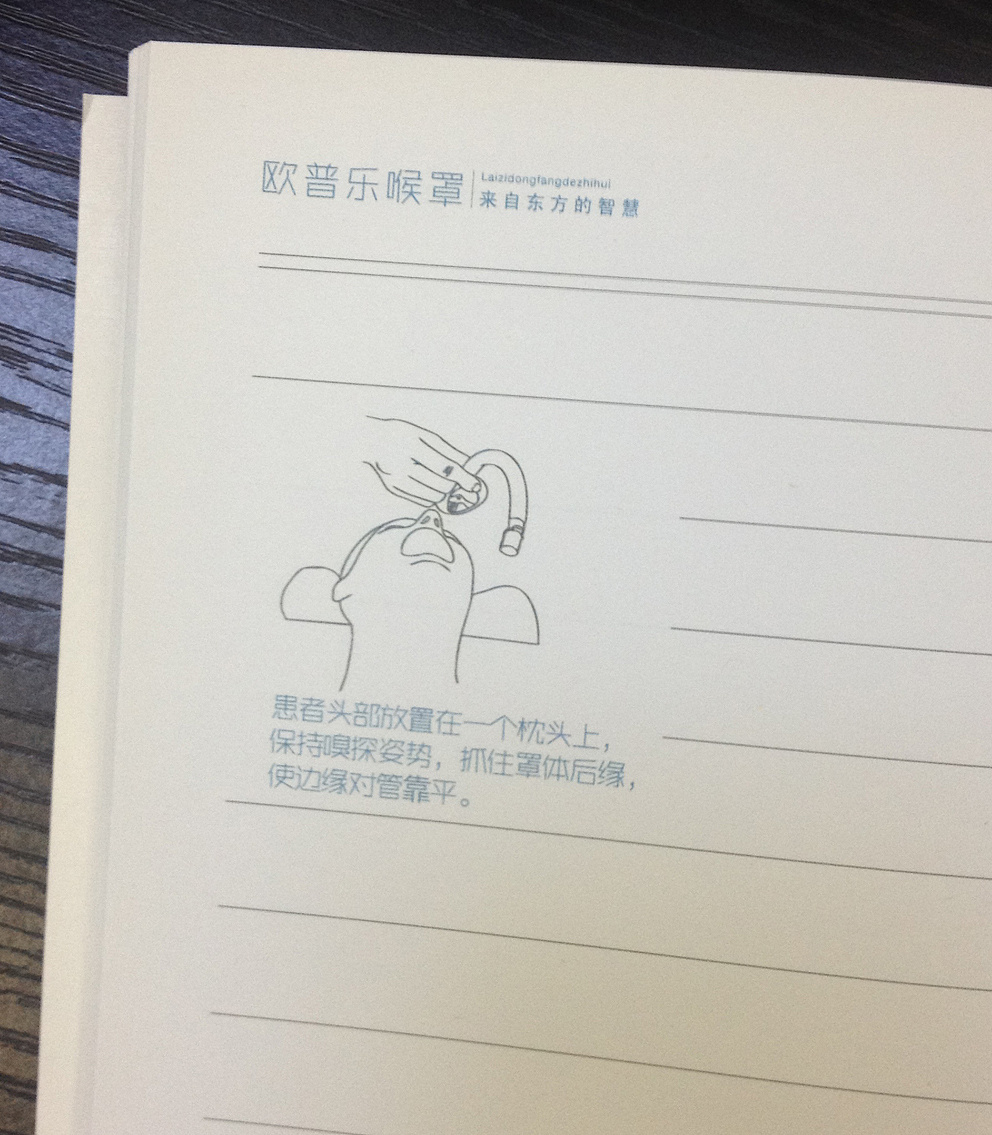 欧普乐喉罩
Laizidongfangdezhihui
来自东方的智慧
患者头部放置在一个枕头上，
保持嗅探姿势，抓住罩体后缘，
使边缘对管靠平。